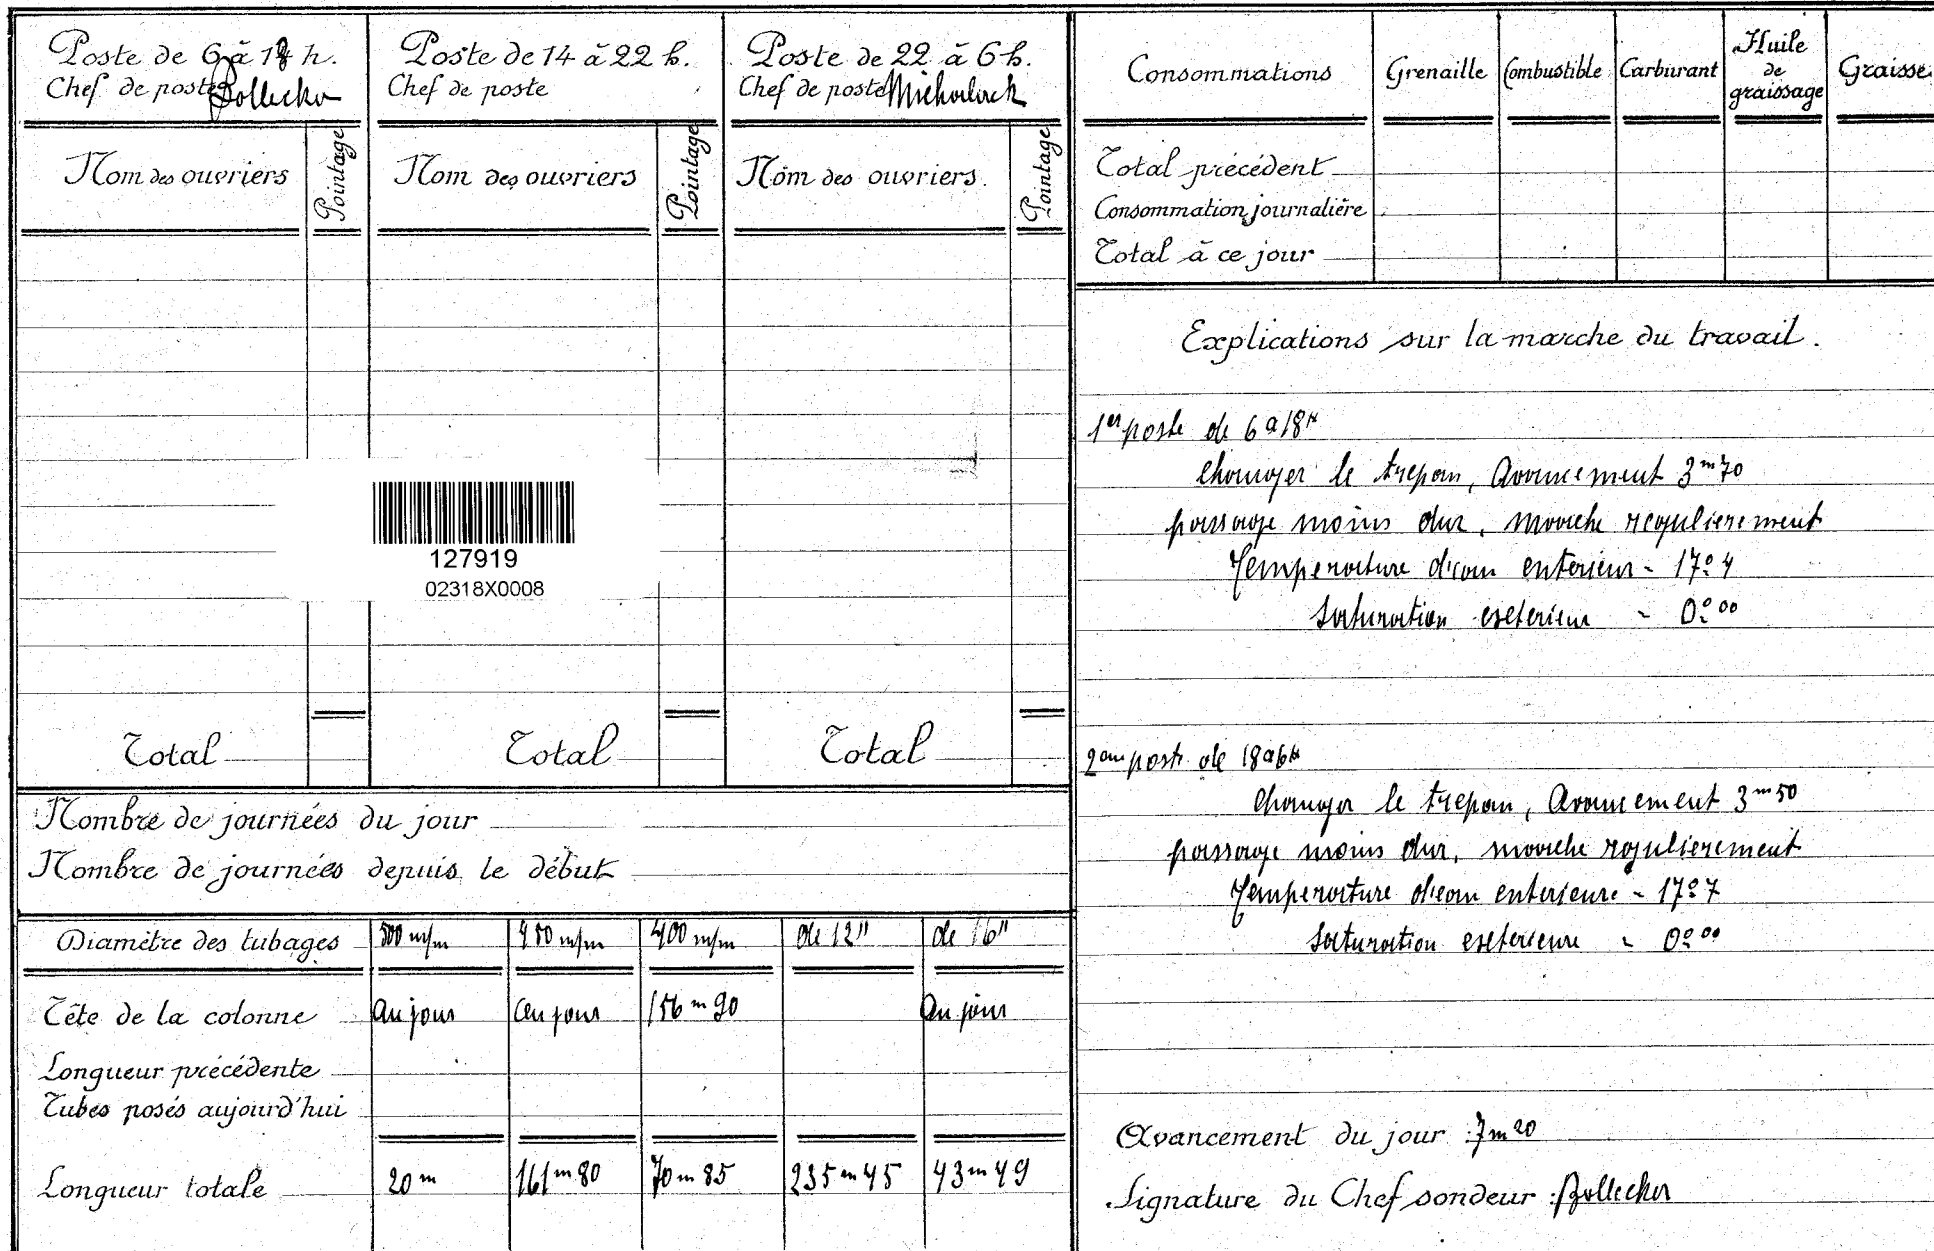 Poste de 6 à 18 h.
Chef de poste Bollecker
Nom des ouvriers
Pointage
Total
Poste de 14 à 22 h.
Chef de poste
Nom des ouvriers
Pointage
Total
Poste de 22 à 6 h.
Chef de poste
Nom des ouvriers.
Pointage
Total
127919
02318X0008
Nombre de journées du jour
Nombre de journées depuis le début
Diamètre des tubages 500 m/m 450 m/m 400 m/m de 12" de 16"
Tête de la colonne au jour au jour 156 m 90 au jour
Longueur précédente
Tubes posés aujourd'hui
Longueur totale 20 m 161 m 80 70 m 85 235 m 45 43 m 49
Consommations Grenaille Combustible Carburant Huile de graissage Graisse
Total précédent
Consommation journalière
Total à ce jour
Explications sur la marche du travail.
1er poste de 6 a 18 H
Changer le trepan, Avancement 3 m 70
passage moins dur, marche regulierement
Temperature d'eau enterieur - 17° 4
Saturation exterieur - 0° 00
2em poste de 18 a 6 H
Changer le trepan, Avancement 3 m 50
passage moins dur, marche regulierement
Temperature d'eau enterieure - 17° 7
Saturation exterieure - 0° 00
Avancement du jour : 7 m 20
Signature du Chef sondeur : Bollecker